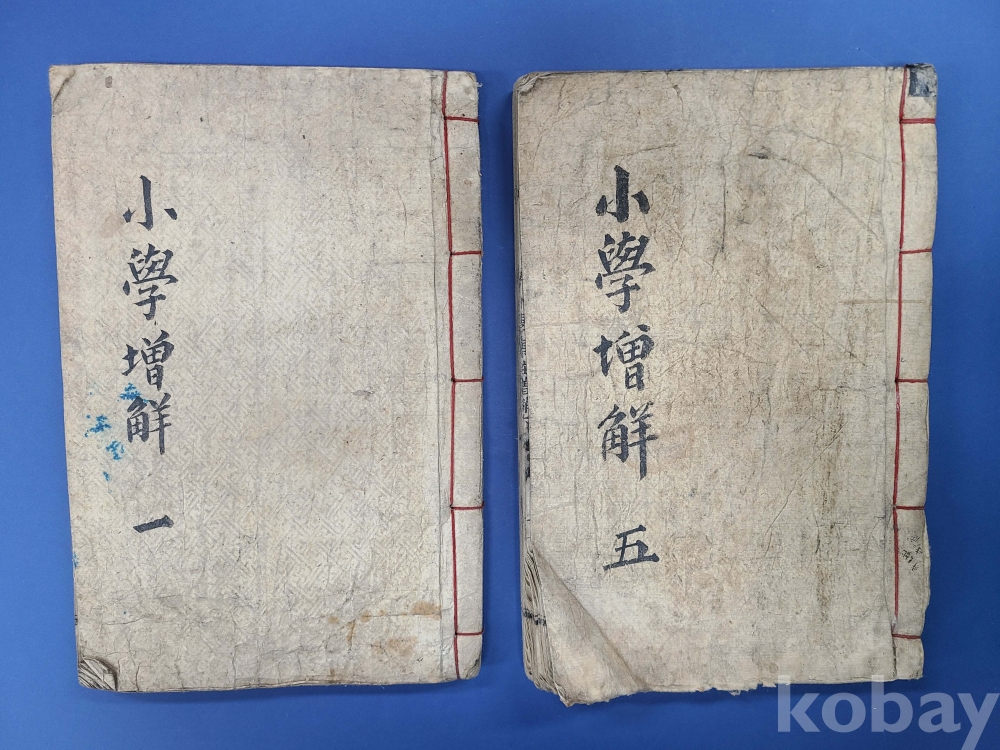 小學增解 一
小學增解 五
kobay